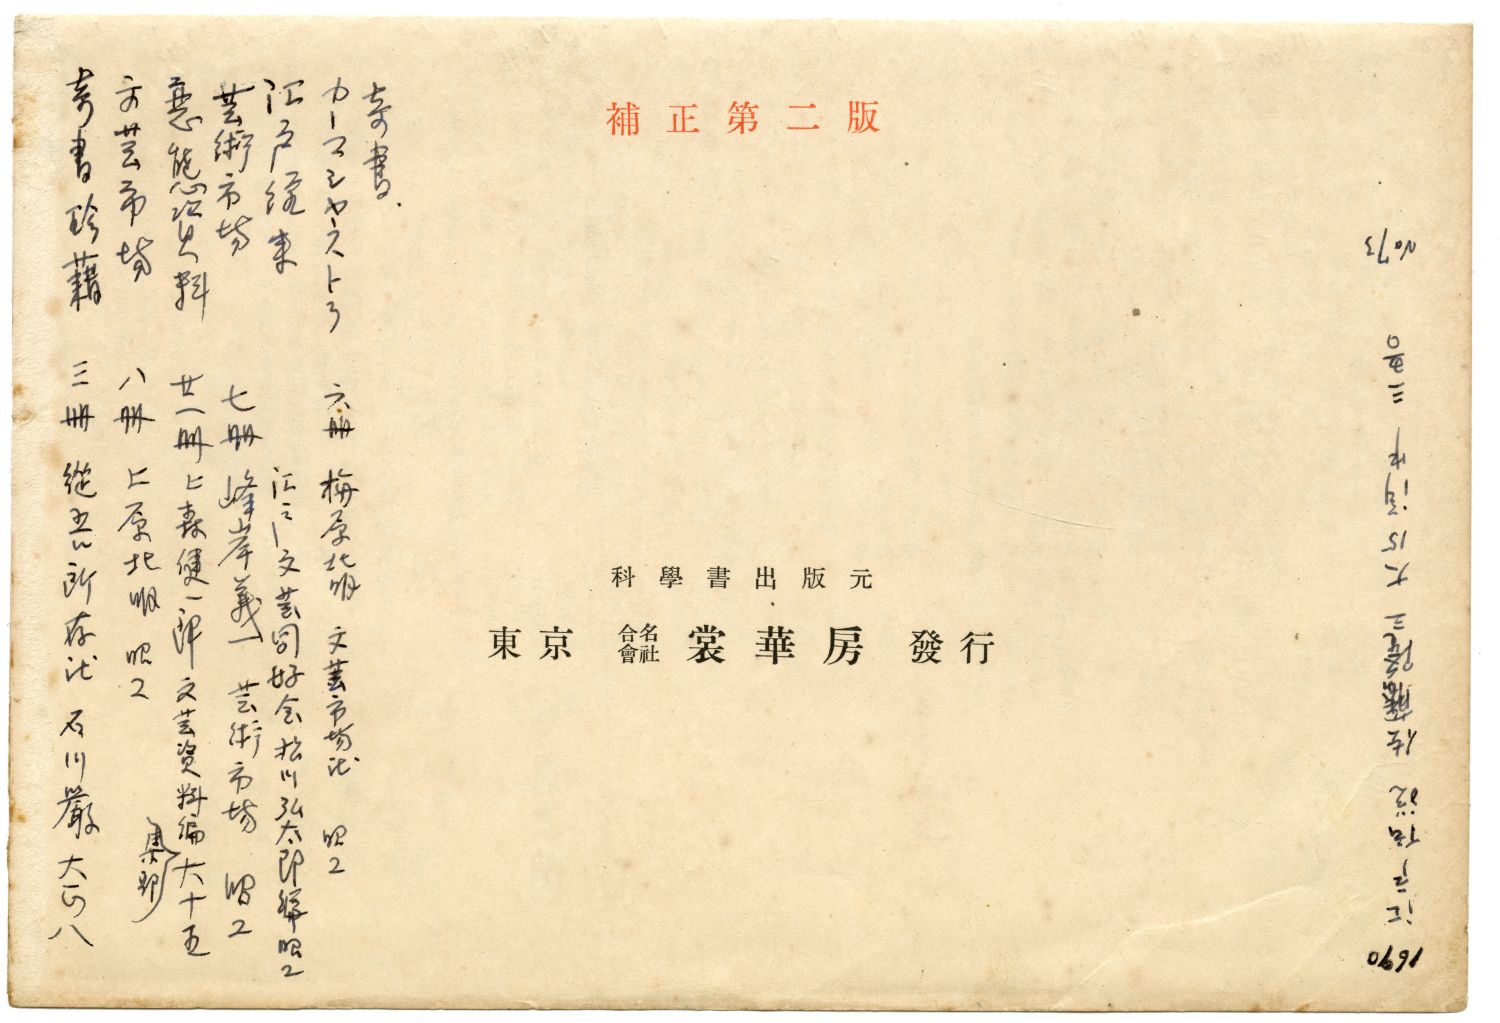 補正第二版
科學書出版元
東京 合名會社 裳華房 發行
奇書.
カーマシャストラ 六冊 梅原北明 文芸市場社 昭2
江戸 江戸文芸同好会 松川弘太郎編 昭2
芸術市場 七冊 峰岸義一 芸術市場 昭2
変態資料 廿一冊 上森健一郎 文芸資料編集部 大十五
文芸市場 八冊 上原北明 昭2
奇書珍籍 三冊 從吾所好社 石川巌 大正八
No73
1690
江戸伝説 佐藤隆三 大15 三五〇